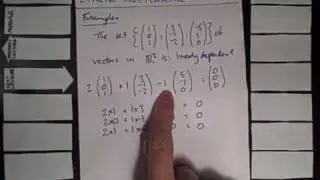 Example:
The set {(1 0 1), (3 -1 -2), (5 -1 0)} of
vectors in is linearly dependent
2 (1 0 1) + 1 (3 -1 -2) -1 (5 -1 0) = (0 0 0)
2x1 + 1x3 = 0
2x0 + 1x-1 = 0
2x1 + 1x 0 = 0